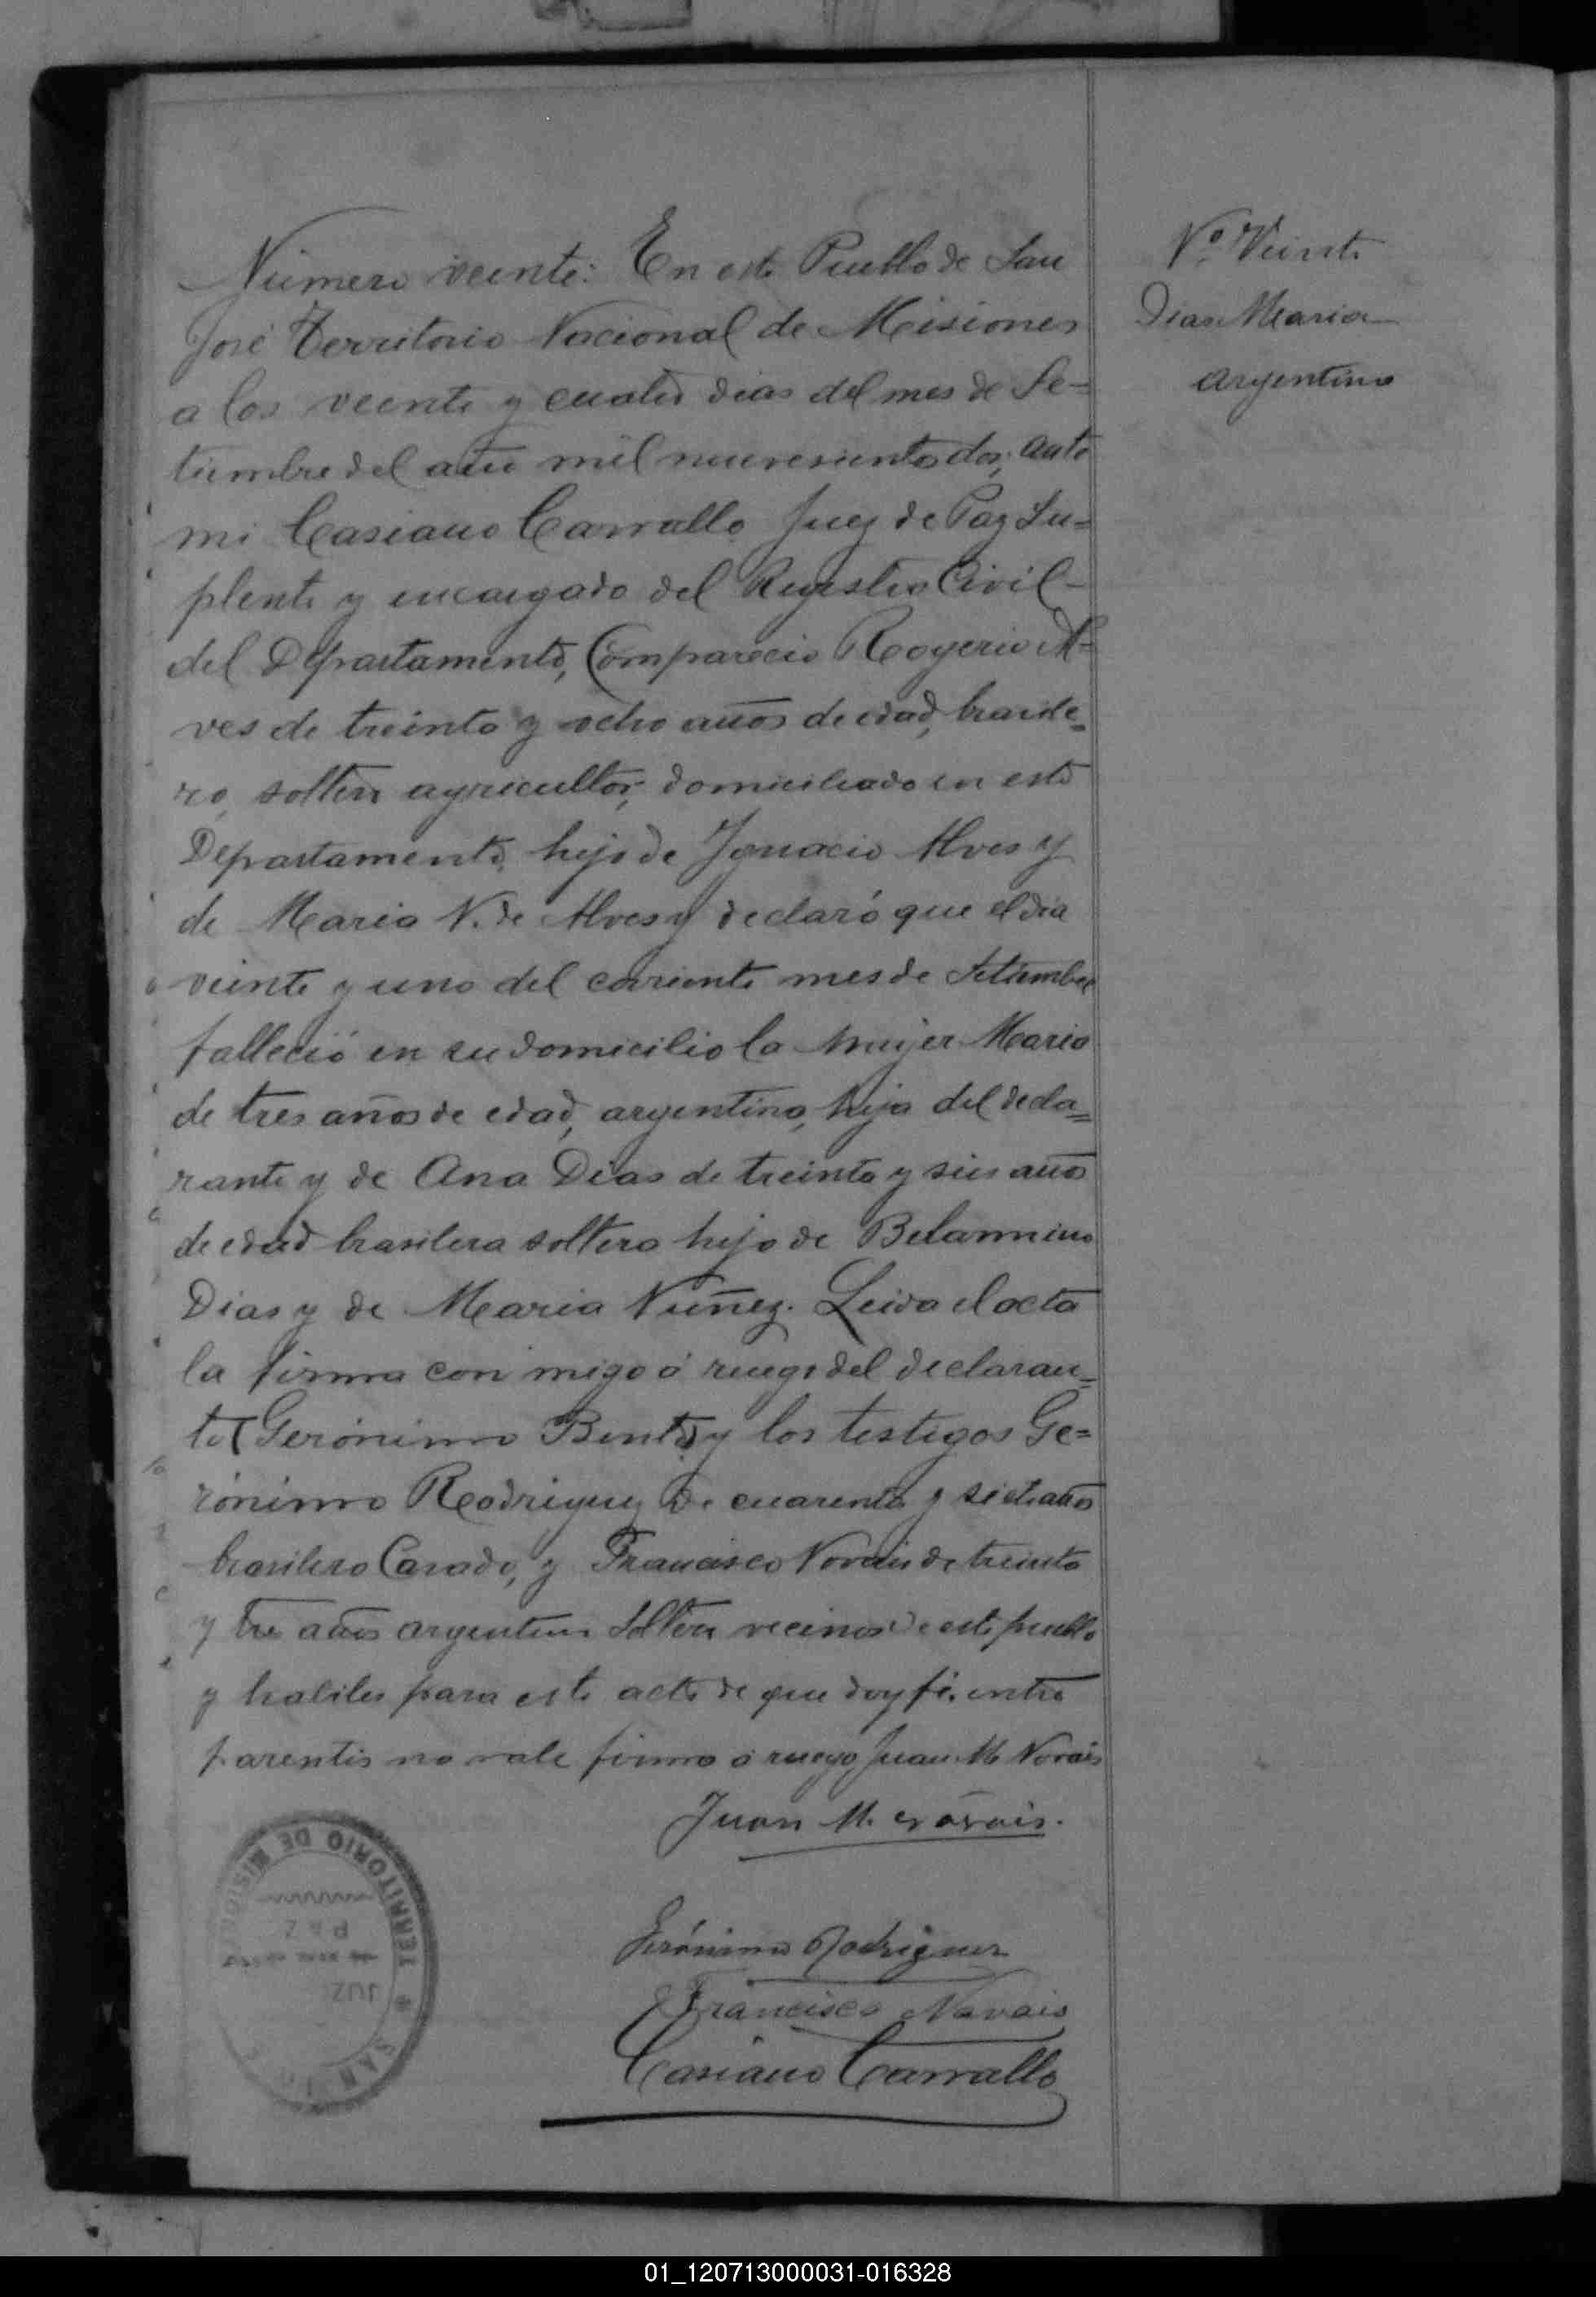 Número veinte: En este Pueblo de San
José Territorio Nacional de Misiones
a los veinte y cuatro dias del mes de Se=
tiembre del año mil nuevesientos dos, ante
mi Casiano Carvallo Juez de Paz Su=
plente y encargado del Registro Civil-
del Departamento, Comparecio Rogerio Al=
ves de treinta y ocho años de edad, brasile=
ro, soltero agricultor, domiciliado en este
Departamento, hijo de Ignacio Alves y
de Maria N. de Alves y declaró que el dia
veinte y uno del corriente mes de Setiembre
falleció en su domicilio la mujer Maria
de tres años de edad, argentina, hija del decla=
rante y de Ana Dias de treinta y seis años
de edad brasilera soltera hija de Belarmino
Dias y de Maria Nuñez. Leida el acta
la firma con migo á ruego del declaran=
te (Gerónimo Bento) y los testigos Ge=
rónimo Rodriguez de cuarenta y siete años
brasilero Casado, y Francisco Novais de treinta
y tre años argentino Soltero vecinos de este pueblo
y habiles para este acto de que doy fé. entre
parentis no vale firma á ruego Juan M. Novais
Juan M. Novais.
Gerónimo Rodriguez
Francisco Novais
Casiano Carvallo
Nº Veinte
Dias Maria
Argentina
TERRITORIO DE MISIONES
PAZ
JUZ
* SAN JOSE
01_120713000031-016328